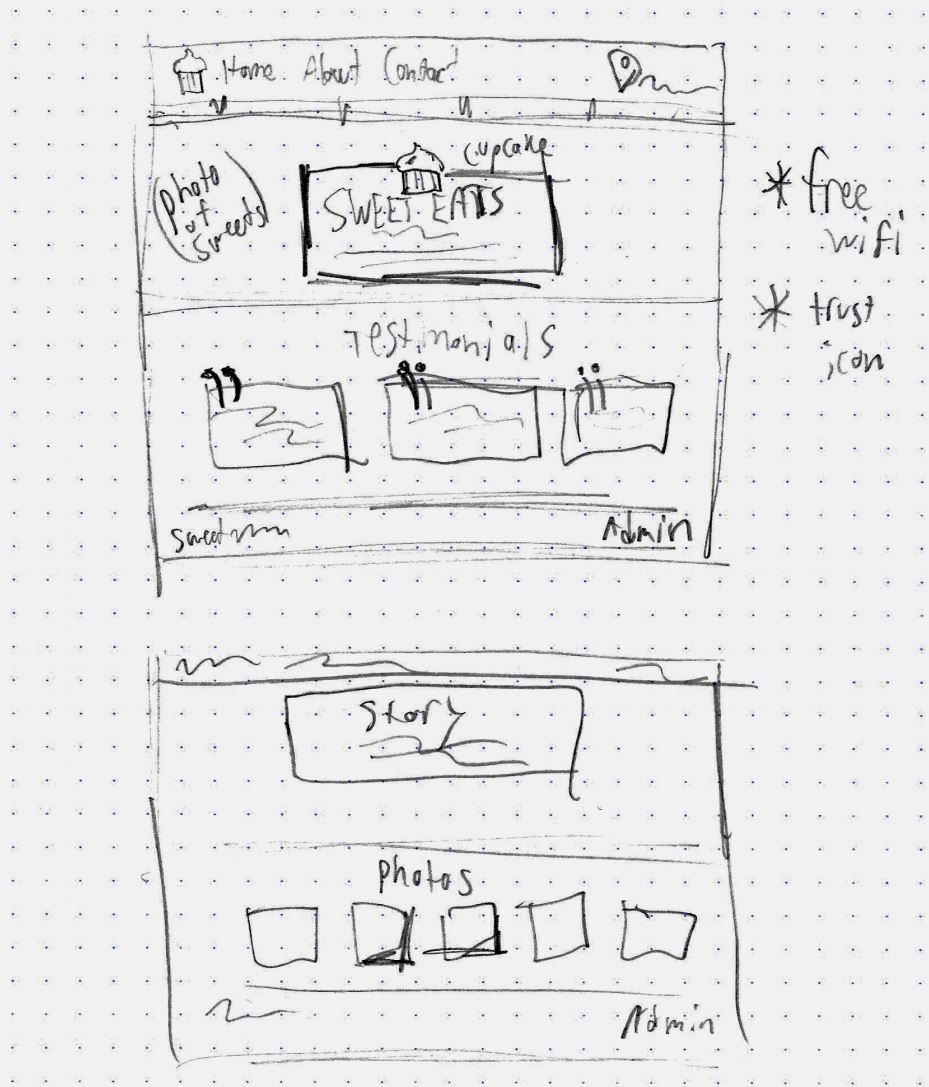 Home About Contact
cupcake
Photo
of
sweets
SWEET EATS
* free
wifi
* trust
icon
Testimonials
sweet
Admin
Story
photos
Admin